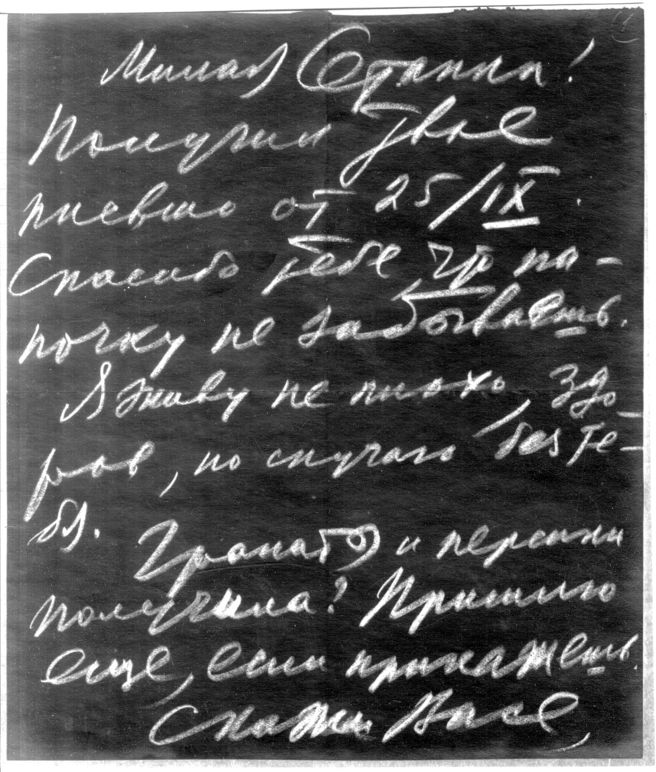 Милая Сетанка!
Получил твое
письмо от 25/IX.
Спасибо тебе, что па-
почку не забываешь.
Я живу не плохо, здо-
ров, но скучаю без те-
бя.
Гранаты и персики
получила? Пришлю
еще, если прикажешь.
Скажи Васе,